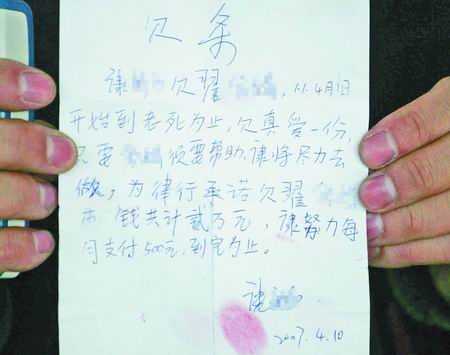 欠条
谏 欠翟 ，从4月1日
开始到老死为止，欠真爱一份，
只要 须要帮助，谏将尽力去
做，为律行承诺欠翟
币 钱共计贰万元，谏努力每
月支付500元，到完为止。
谏
2007.4.10